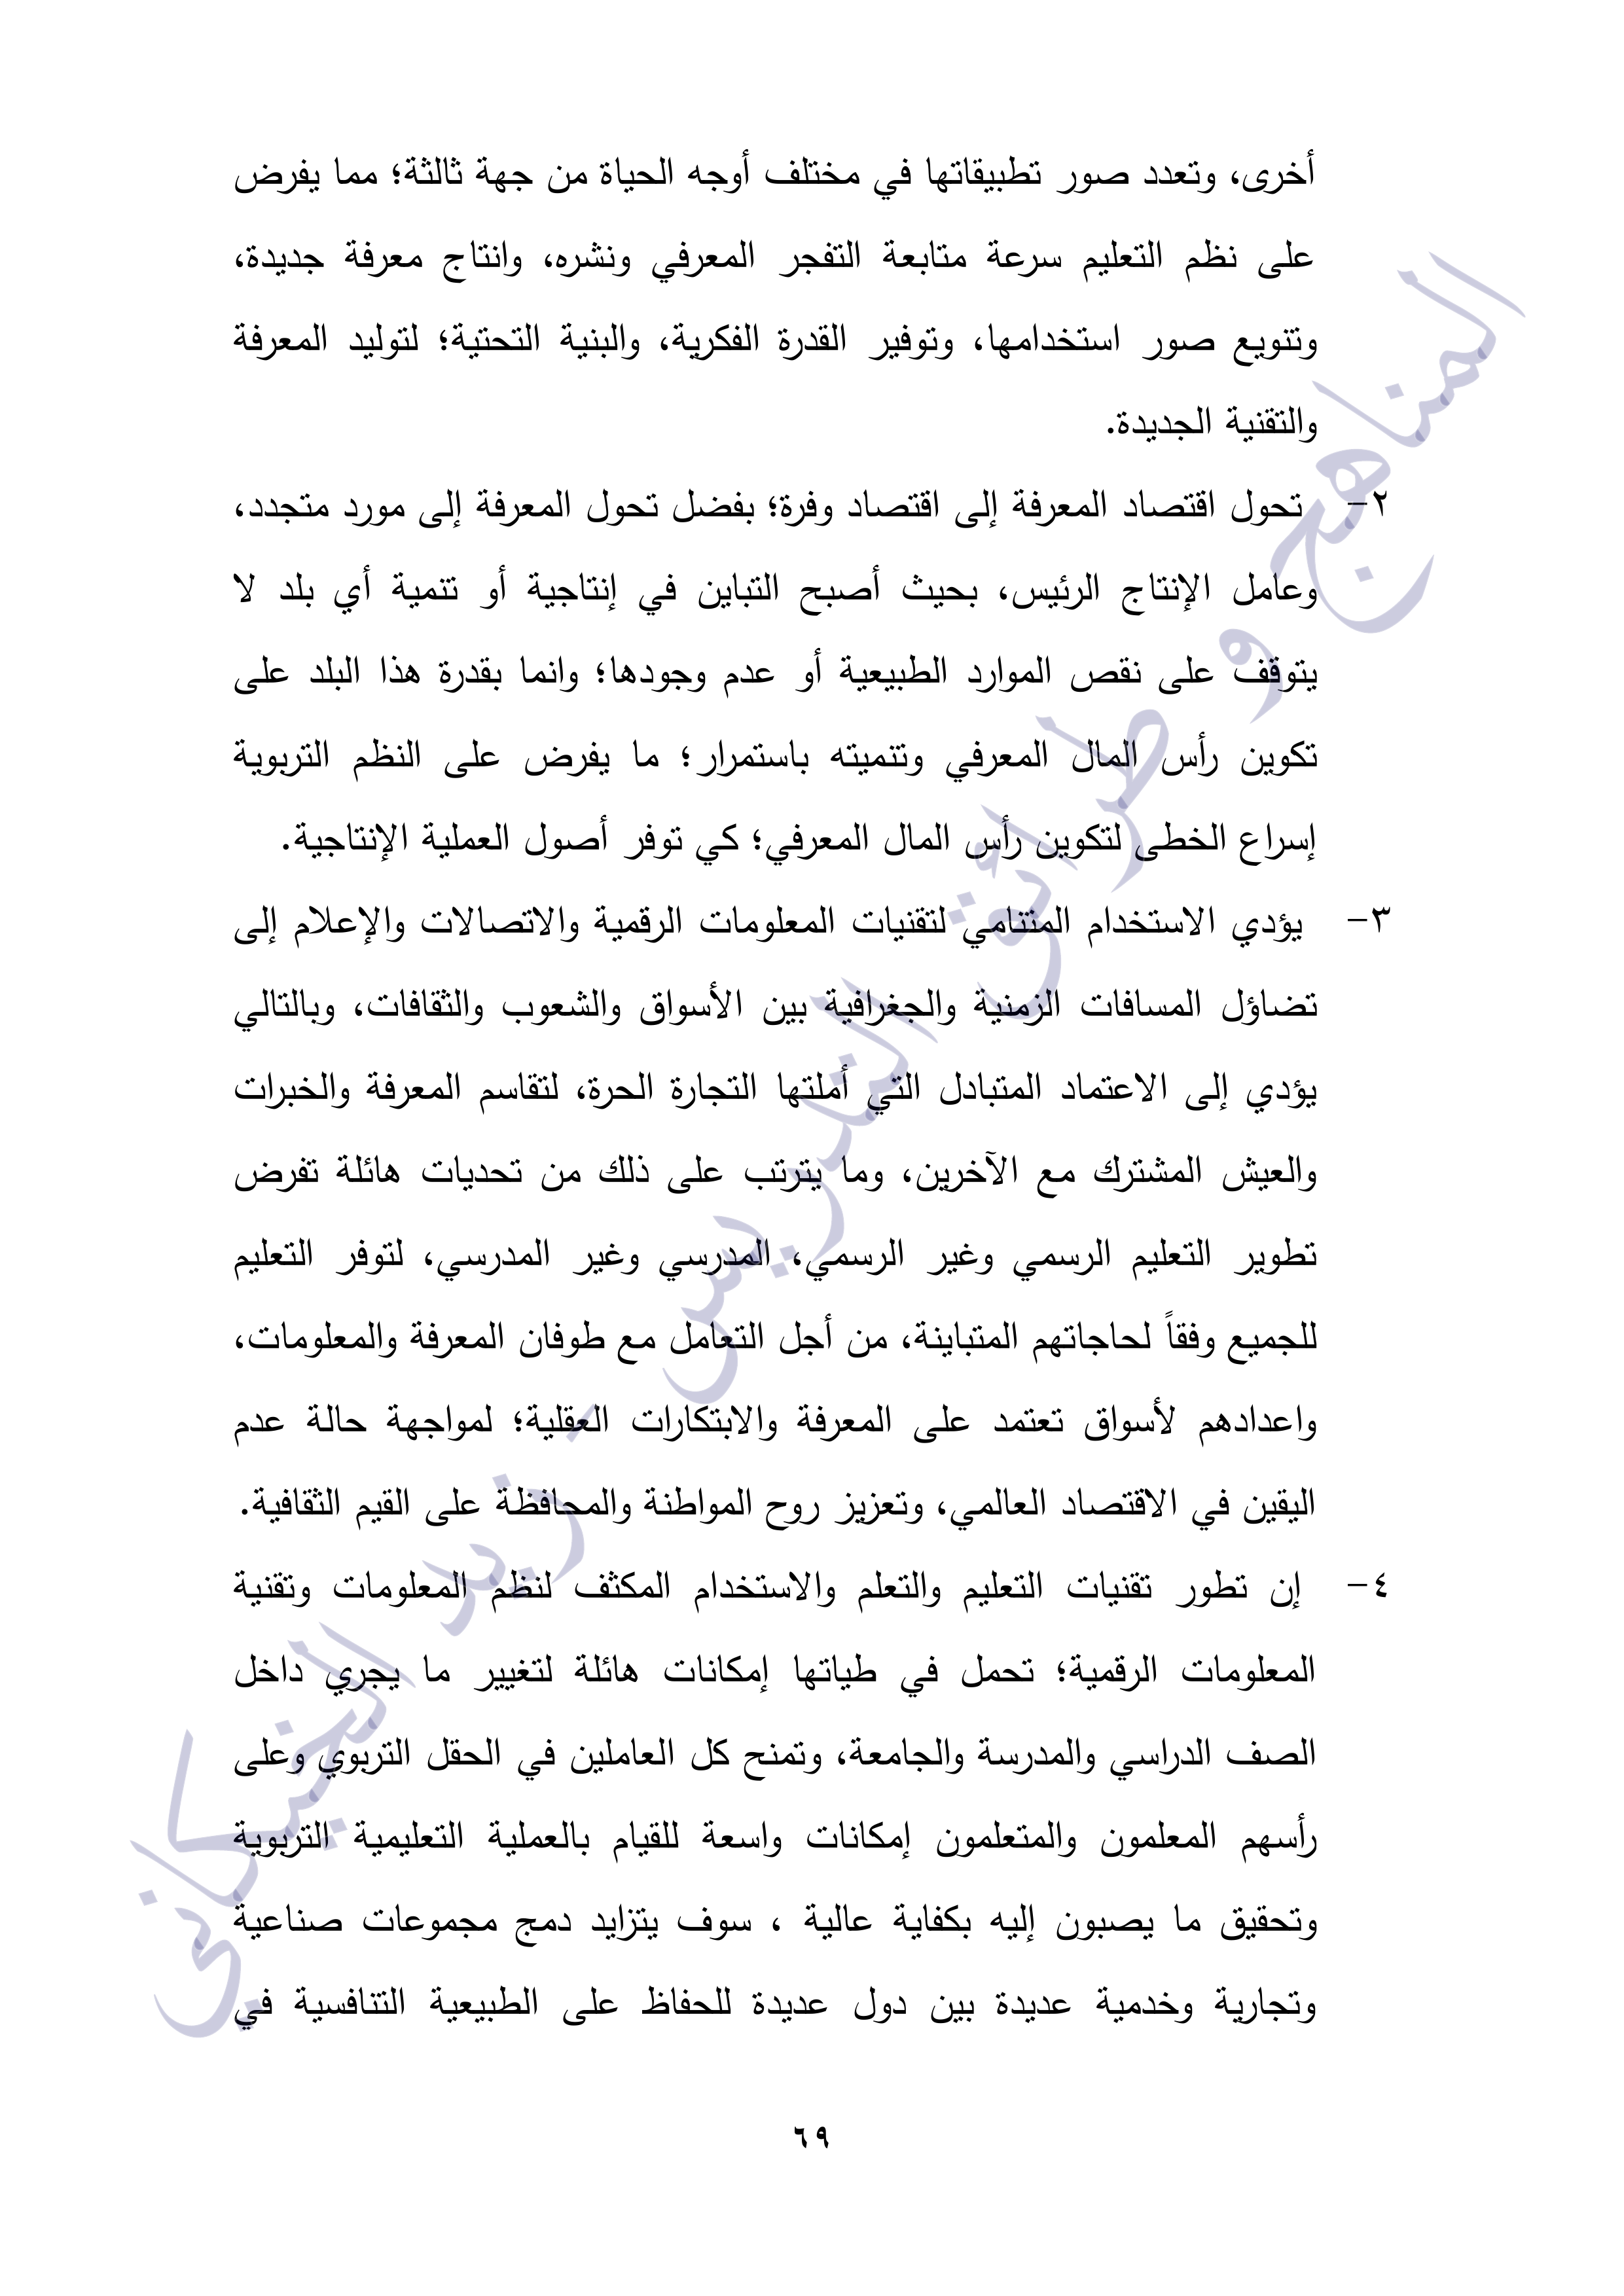 أخرى، وتعدد صور تطبيقاتها في مختلف أوجه الحياة من جهة ثالثة؛ مما يفرض
على نظم التعليم سرعة متابعة التفجر المعرفي ونشره، وانتاج معرفة جديدة،
وتنويع صور استخدامها، وتوفير القدرة الفكرية، والبنية التحتية؛ لتوليد المعرفة
والتقنية الجديدة.
٢- تحول اقتصاد المعرفة إلى اقتصاد وفرة؛ بفضل تحول المعرفة إلى مورد متجدد،
وعامل الإنتاج الرئيس، بحيث أصبح التباين في إنتاجية أو تنمية أي بلد لا
يتوقف على نقص الموارد الطبيعية أو عدم وجودها؛ وانما بقدرة هذا البلد على
تكوين رأس المال المعرفي وتنميته باستمرار؛ ما يفرض على النظم التربوية
إسراع الخطى لتكوين رأس المال المعرفي؛ كي توفر أصول العملية الإنتاجية.
٣- يؤدي الاستخدام المتنامي لتقنيات المعلومات الرقمية والاتصالات والإعلام إلى
تضاؤل المسافات الزمنية والجغرافية بين الأسواق والشعوب والثقافات، وبالتالي
يؤدي إلى الاعتماد المتبادل التي أملتها التجارة الحرة، لتقاسم المعرفة والخبرات
والعيش المشترك مع الآخرين، وما يترتب على ذلك من تحديات هائلة تفرض
تطوير التعليم الرسمي وغير الرسمي، المدرسي وغير المدرسي، لتوفر التعليم
للجميع وفقاً لحاجاتهم المتباينة، من أجل التعامل مع طوفان المعرفة والمعلومات،
واعدادهم لأسواق تعتمد على المعرفة والابتكارات العقلية؛ لمواجهة حالة عدم
اليقين في الاقتصاد العالمي، وتعزيز روح المواطنة والمحافظة على القيم الثقافية.
٤- إن تطور تقنيات التعليم والتعلم والاستخدام المكثف لنظم المعلومات وتقنية
المعلومات الرقمية؛ تحمل في طياتها إمكانات هائلة لتغيير ما يجري داخل
الصف الدراسي والمدرسة والجامعة، وتمنح كل العاملين في الحقل التربوي وعلى
رأسهم المعلمون والمتعلمون إمكانات واسعة للقيام بالعملية التعليمية التربوية
وتحقيق ما يصبون إليه بكفاية عالية ، سوف يتزايد دمج مجموعات صناعية
وتجارية وخدمية عديدة بين دول عديدة للحفاظ على الطبيعية التنافسية في
٦٩
المناهج و طرائق التدريس - زيد الخيكاني